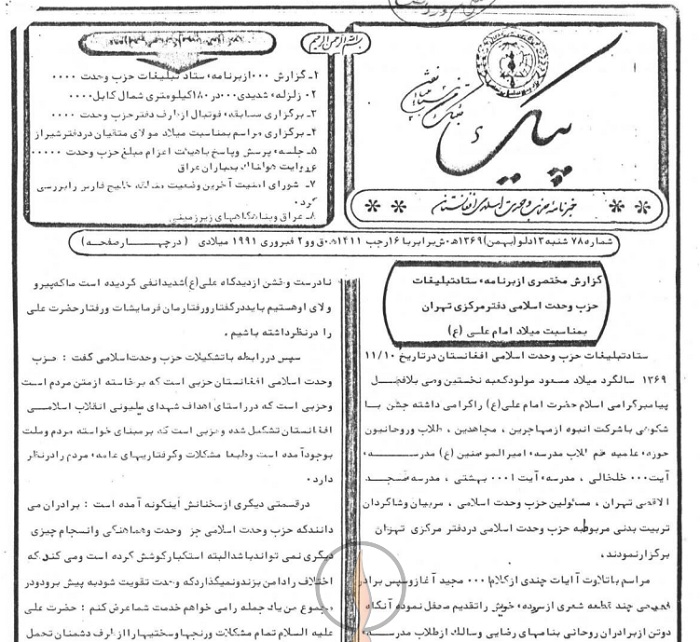 بسم الله الرحمن الرحیم
پیک
خبرنامه حزب وحدت اسلامی افغانستان
۱- گزارش ۰۰۰ ازبرنامه ستاد تبلیغات حزب وحدت ۰۰۰۰
۲- زلزله شدیدی ۰۰۰ در ۱۸۰ کیلومتری شمال کابل ۰۰۰۰
۳- برگزاری مسابقه فوتبال ازطرف دفترحزب وحدت ۰۰۰۰
۴- برگزاری مراسم بمناسبت میلاد مولای متقیان دردفترشیراز
۵- جلسه پرسش وپاسخ باهیئت اعزام مبلغ حزب وحدت ۰۰۰۰۰
۶- روایت هولناک بمباران عراق
۷- شورای امنیت آخرین وضعیت منطقه خلیج فارس رابررسی
کرد
۸- عراق وپناهگاههای زیرزمینی
شماره ۷۸ شنبه ۱۳ دلو (بهمن) ۱۳۶۹ ه ش برابربا ۱۶ رجب ۱۴۱۱ ه ق و ۲ فبروری ۱۹۹۱ میلادی (درچهارصفحه)
گزارش مختصری ازبرنامه ستادتبلیغات
حزب وحدت اسلامی دفترمرکزی تهران
بمناسبت میلاد امام علی (ع)
ستادتبلیغات حزب وحدت اسلامی افغانستان درتاریخ ۱۱/۱۰
۱۳۶۹ سالگرد میلاد مسعود مولودکعبه نخستین وصی بلافصل
پیامبرگرامی اسلام حضرت امام علی(ع) راگرامی داشته جشن با
شکوهی باشرکت انبوه ازمهاجرین ، مجاهدین ، طلاب وروحانیون
حوزه علمیه قم طلاب مدرسه امیرالمومنین (ع) مدرسه
آیت ۰۰۰ خلخالی ، مدرسه آیت ۰۰۰ بهشتی ، مدرسه مسجد
الاقصی تهران ، مسئولین حزب وحدت اسلامی ، مربیان وشاگردان
تربیت بدنی مربوطه حزب وحدت اسلامی دردفتر مرکزی تهران
برگزارنمودند .
مراسم باتلاوت آیات چندی ازکلام ۰۰۰ مجید آغازوسپس برادر
فصیحی چند قطعه شعری ازسروده خویش راتقدیم محفل نموده آنگاه
دوتن ازبرادران روحانی بنامهای رضایی وسالک ازطلاب مدرسه
نادرست وخشن ازدیدگاه علی(ع) شدیدانفی گردیده است ماکه پیرو
ولای اوهستیم بایددرگفتارورفتارمان فرمایشات ورفتارحضرت علی
را درنظرداشته باشیم .
سپس دررابطه باتشکیلات حزب وحدت اسلامی گفت : حزب
وحدت اسلامی افغانستان حزبی است که برخاسته ازمتن مردم است
وحزبی است که درراستای اهداف شهدای ملیونی انقلاب اسلامی
افغانستان تشکیل شده وحزبی است که برمبنای خواسته مردم وملت
بوجودآمده است وطبعا مشکلات وگرفتاریهای عامه مردم رادرنظر
دارد .
درقسمتی دیگری ازسخنانش اینگونه آمده است : برادران می
دانندکه حزب وحدت اسلامی جز وحدت وهماهنگی وانسجام چیزی
دیگری نمی تواندباشدالبته استکبارکوشش کرده است ومی کند که
اختلاف رادامن بزندونمیگذاردکه وحدت تقویت شودبه پیش برود در
مجموع من یک جمله رامی خواهم خدمت شماعرض کنم : حضرت علی
علیه السلام تمام مشکلات ورنجهاوسختیهارا ازطرف دشمنان تحمل